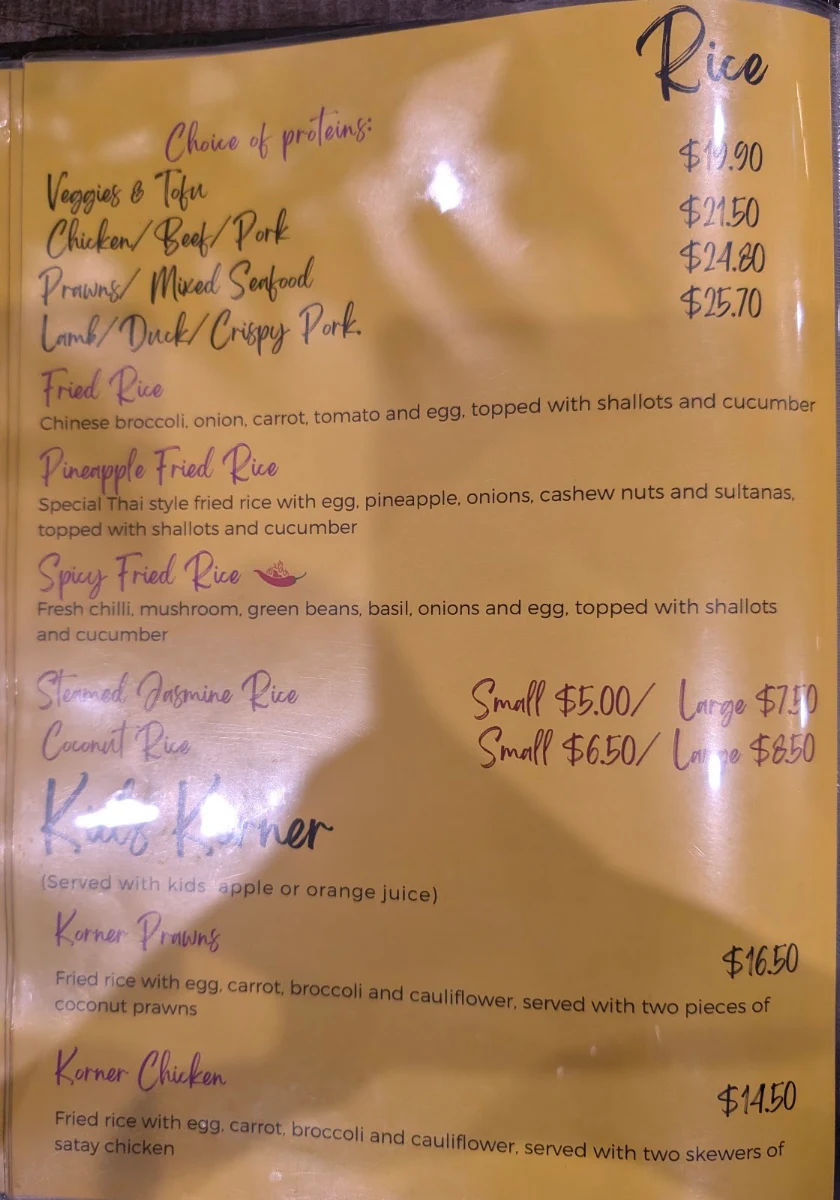 Rice
Choice of proteins:
Veggies & Tofu $19.90
Chicken/ Beef/ Pork $21.50
Prawns/ Mixed Seafood $24.80
Lamb/ Duck/ Crispy Pork. $25.70
Fried Rice
Chinese broccoli, onion, carrot, tomato and egg, topped with shallots and cucumber
Pineapple Fried Rice
Special Thai style fried rice with egg, pineapple, onions, cashew nuts and sultanas,
topped with shallots and cucumber
Spicy Fried Rice
Fresh chilli, mushroom, green beans, basil, onions and egg, topped with shallots
and cucumber
Steamed Jasmine Rice Small $5.00/ Large $7.50
Coconut Rice Small $6.50/ Large $8.50
Kids Korner
(Served with kids apple or orange juice)
Korner Prawns $16.50
Fried rice with egg, carrot, broccoli and cauliflower, served with two pieces of
coconut prawns
Korner Chicken $14.50
Fried rice with egg, carrot, broccoli and cauliflower, served with two skewers of
satay chicken